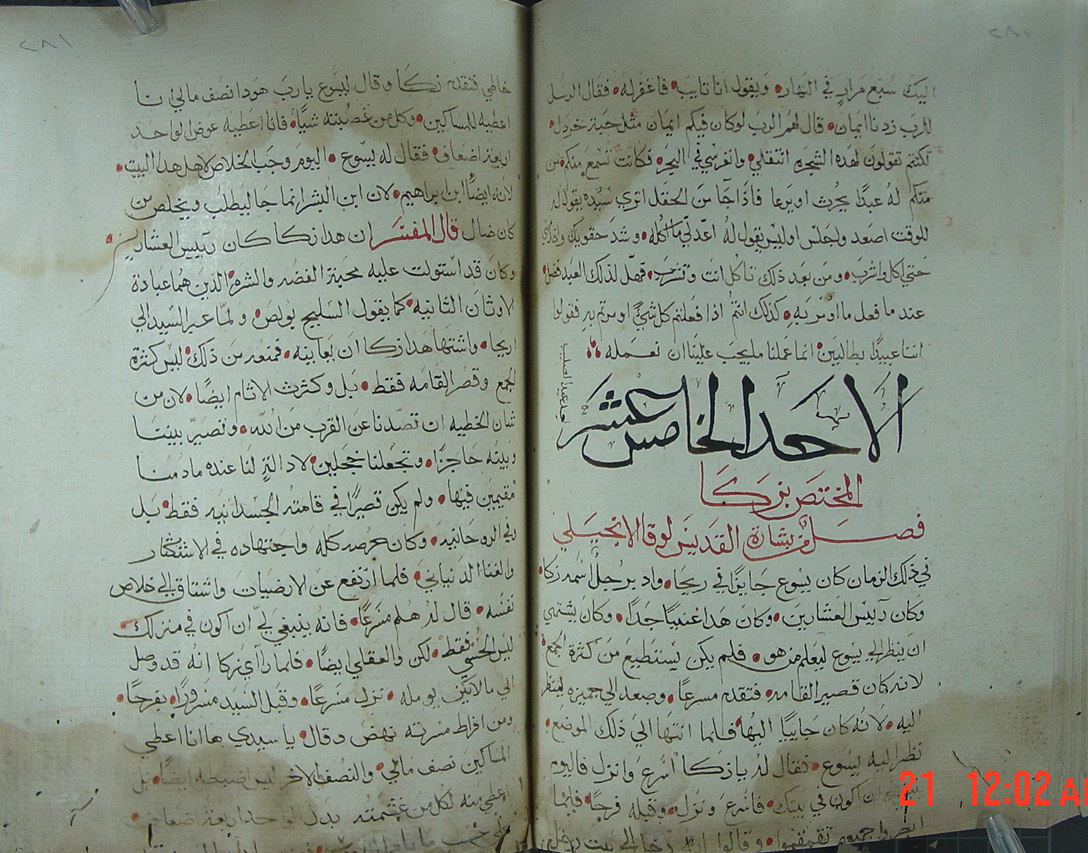 اليك سبع مرار في النهار ويقول انا تايب فاغفر له فقال الرسل
للرب زدنا ايمان قال لهم الرب لو كان فيكم ايمان مثل حبة خردل
لكنتم تقولون لهذه الشجره انتقلي وانغرسي في البحر فكانت تسمع منكم من
منكم له عبدًا يحرث او يرعا فاذا جا من الحقل اترى سيده يقول له
للوقت اصعد واجلس اوليس يقول له اعد لي ما اكله وشد حقويك واخدمني
حتى اكل واشرب ومن بعد ذلك تاكل انت وتشرب فهل لذلك العبد فضل
عند ما فعل ما اومر به كذلك انتم اذا فعلتم كل شي اومرتم به فقولوا
اننا عبيدًا بطالين انما عملنا ما يجب علينا ان نعمله
الاحد الخامس عشر
المختص بزكا
فصل من بشارة القديس لوقا الانجيلي
في ذلك الزمان كان يسوع جايزًا في ريحا واذ برجل اسمه زكا
وكان رييس العشارين وكان هذا غنيًا جدًا وكان يشتهي
ان ينظر الى يسوع ليعلم من هو فلم يكن يستطيع من كثرة الجمع
لانه كان قصير القامه فتقدم مسرعًا وصعد الى جميزه لينظر
اليه لانه كان جاييًا اليها فلما انتها الي ذلك الموضع
نظر اليه يسوع فقال له يا زكا اسرع وانزل فاليوم
ان اكون في بيتك فاسرع ونزل وقبله فرحًا فلما
جميعهم تقمقموا وقالوا انه دخل الى بيت رجل
٢٨١
خاطي فتقدم زكا وقال ليسوع يا رب هوذا نصف مالي انا
اعطيه للمساكين وكل من غصبته شيًا فانا اعطيه عوض الواحد
اربعة اضعاف فقال له يسوع اليوم وجب الخلاص لاهل هذا البيت
لانه ايضًا ابن ابراهيم لان ابن البشر انما جا ليطلب ويخلص من
كان ضال قال المفسر ان هذا زكا كان رييس العشارين
وكان قد استولت عليه محبة الفضه والشره الذين هما عبادة
الاوثان الثانيه كما يقول السليح بولص ولما عبر السيد الي
اريحا واشتها هذا زكا ان يعاينه فمنعه من ذلك ليس كثرة
الجمع وقصر القامه فقط بل وكثرت الاثام ايضًا لان من
شان الخطيه ان تصدنا عن القرب من الله وتصير بيننا
وبينه حاجزًا وتجعلنا خجلين لا دالة لنا عنده ما دمنا
مقيمين فيها ولم يكن قصيرًا في قامته الجسدانيه فقط بل
وفي الروحانيه وكان حرصه كله واجتهاده في الاستكثار
والغنا الدنياني فلما ارتفع عن الارضيات واشتاق الى خلاص
نفسه قال له هلم مسرعًا فانه ينبغي لي ان اكون في منزلك
ليس الحسي فقط لكن والعقلي ايضًا فلما راي زكا انه قد وصل
الي ما لا يكن يومله نزل مسرعًا وقبل السيد مسرورًا بفرحًا
ومن افراط مسرته نهض وقال يا سيدي ها انا اعطي
المساكين نصف مالي والنصف الاخر ليس اضبطه ايضًا بل
اعطي منه لكل من غشمته بدل الواحد اربعة اضعاف
21 12:02 AM